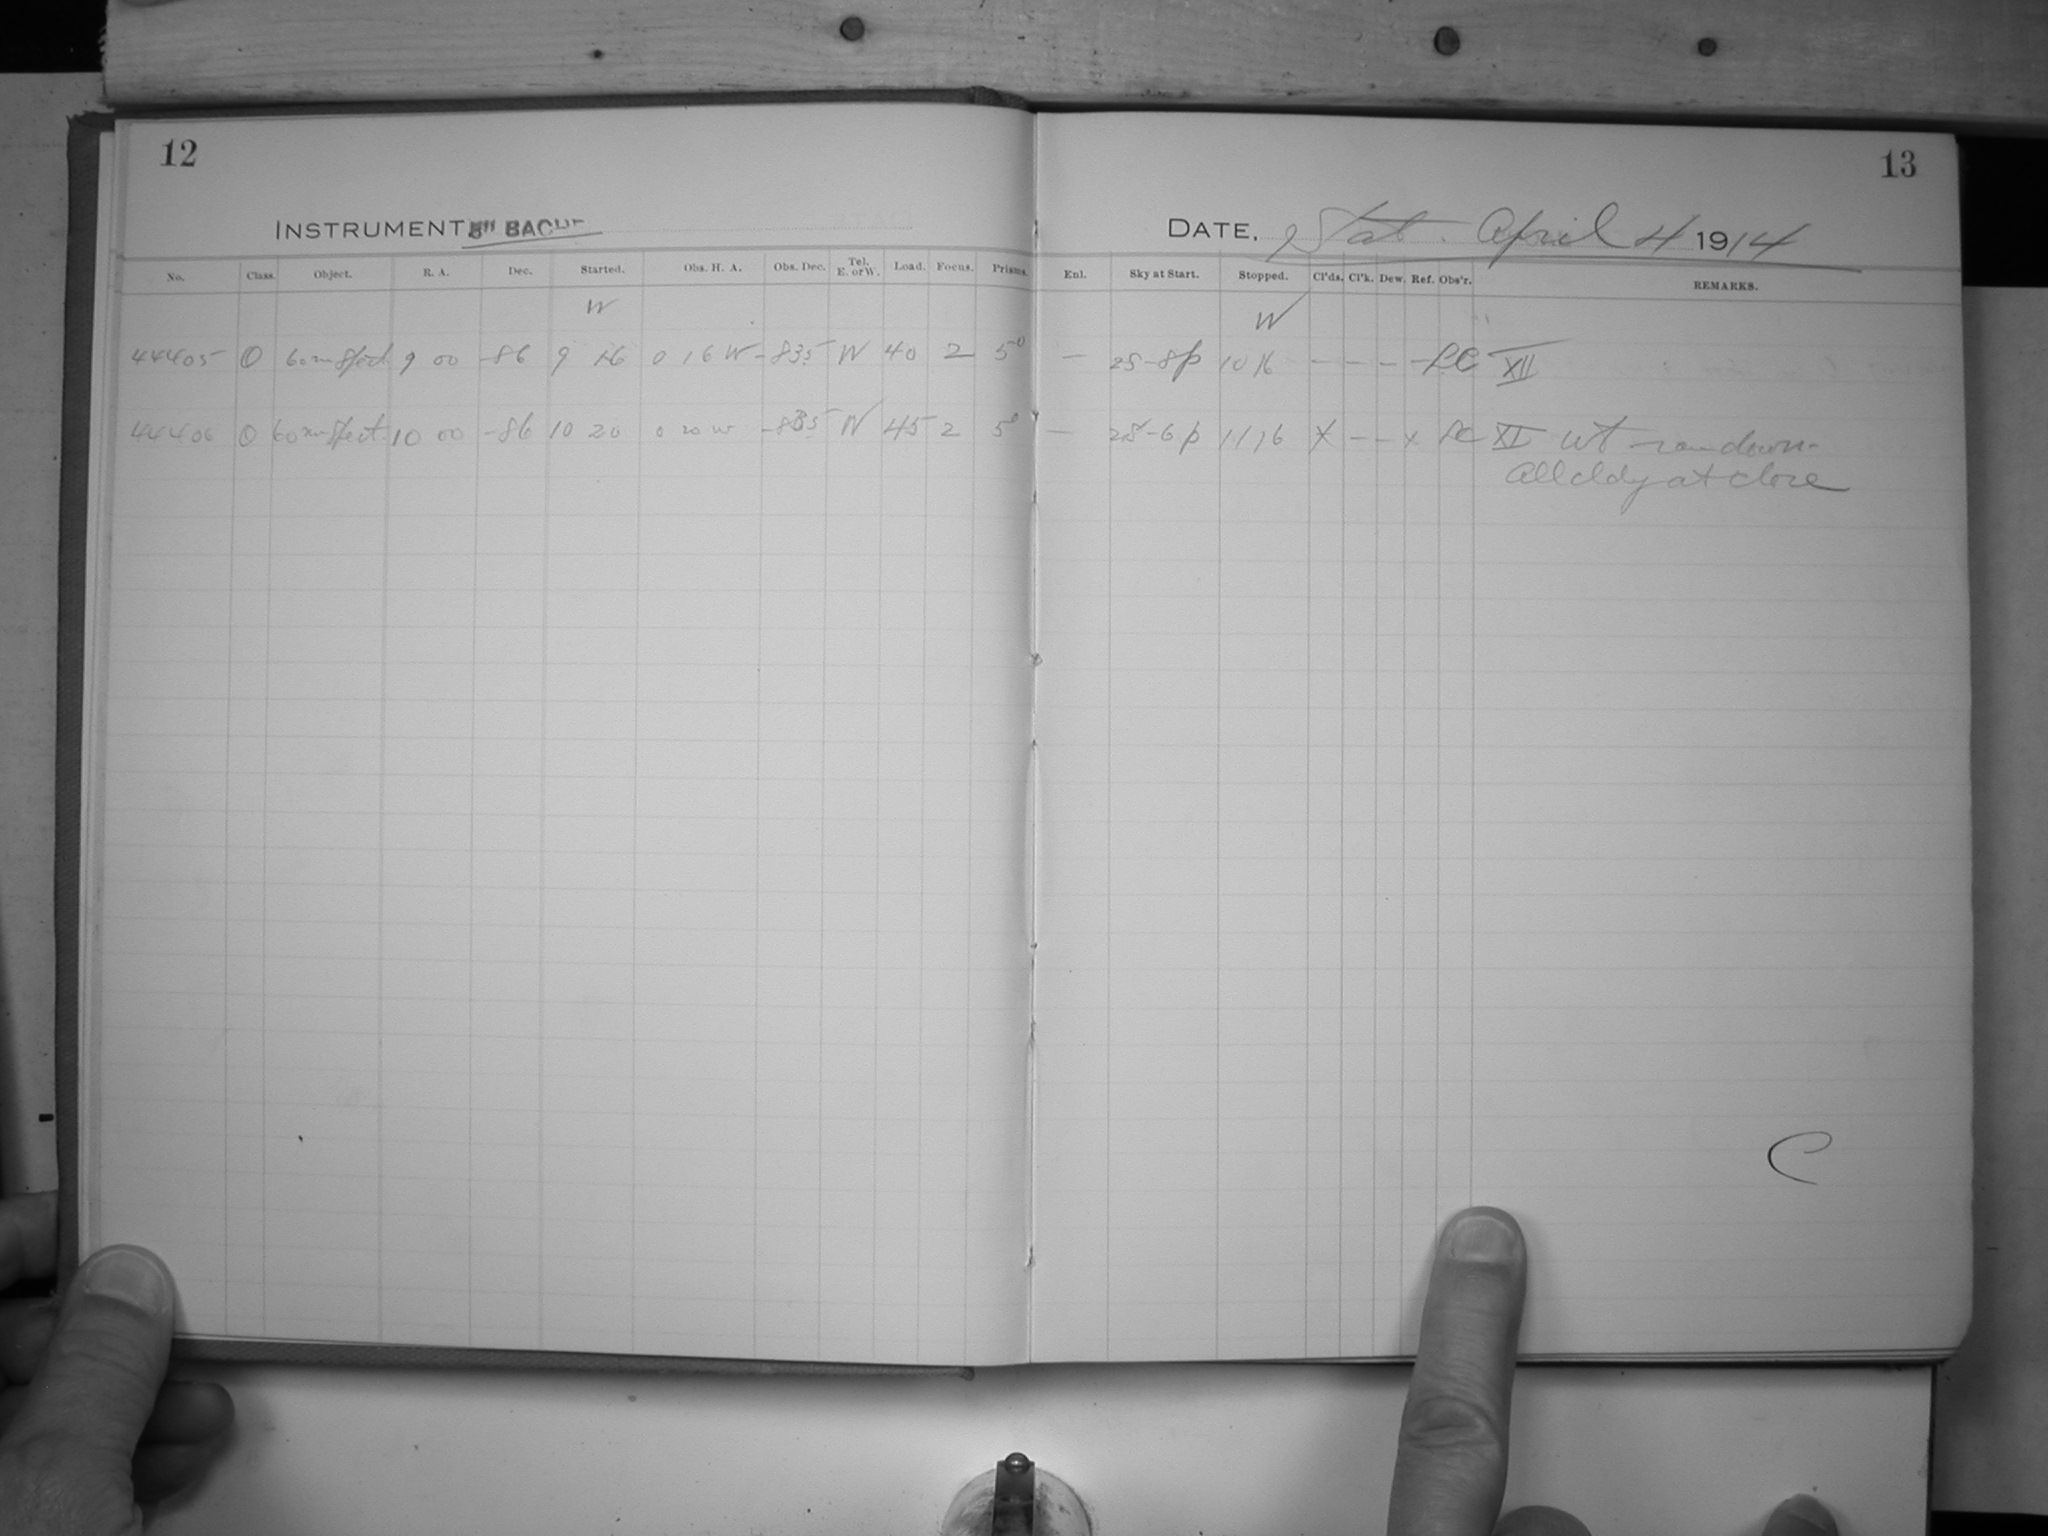 12
13
INSTRUMENT 8" BACHE
DATE, Sat. April 4 1914
No. Class. Object. R. A. Dec. Started. Obs. H. A. Obs. Dec. Tel. E. or W. Load. Focus. Prisms. Enl. Sky at Start. Stopped. Cl'ds. Cl'k. Dew. Ref. Obs'r. REMARKS.
W W
44405 O 60m Spect 9 00 -86 9 16 0 16 W -835 W 40 2 5° — 25-8p 10 16 - - - - LC XII
44406 O 60m Spect 10 00 -86 10 20 0 20 W -835 W 45 2 5° — 25-6p 11 16 X - - x LC XI Wt ran down-
All cldy at close
C